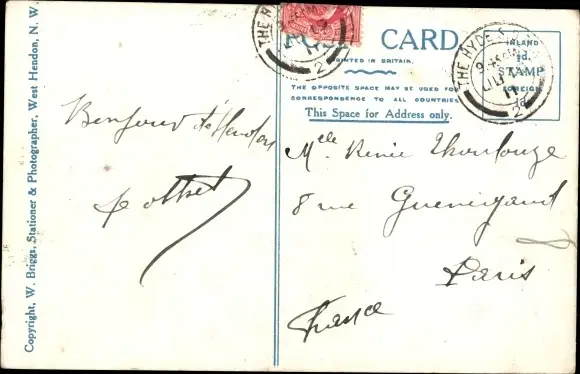 Copyright, W. Briggs, Stationer & Photographer, West Hendon, N. W.
POST CARD
PRINTED IN BRITAIN.
THE OPPOSITE SPACE MAY BE USED FOR
CORRESPONDENCE TO ALL COUNTRIES
This Space for Address only.
INLAND
½d.
STAMP
FOREIGN
1d.
THE HYDE
2
THE HYDE
2
Bonjour de Hendon
Melle Renée
8 rue
Paris
France